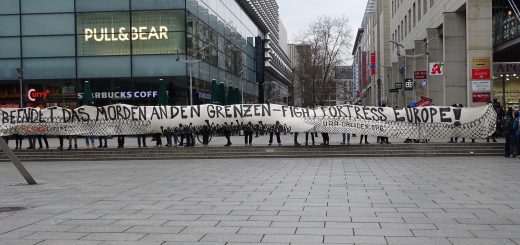 PULL&BEAR
STARBUCKS COFFEE
BEENDET DAS MORDEN AN DEN GRENZEN - FIGHT FORTRESS EUROPE!
URA-DRESDEN.ORG